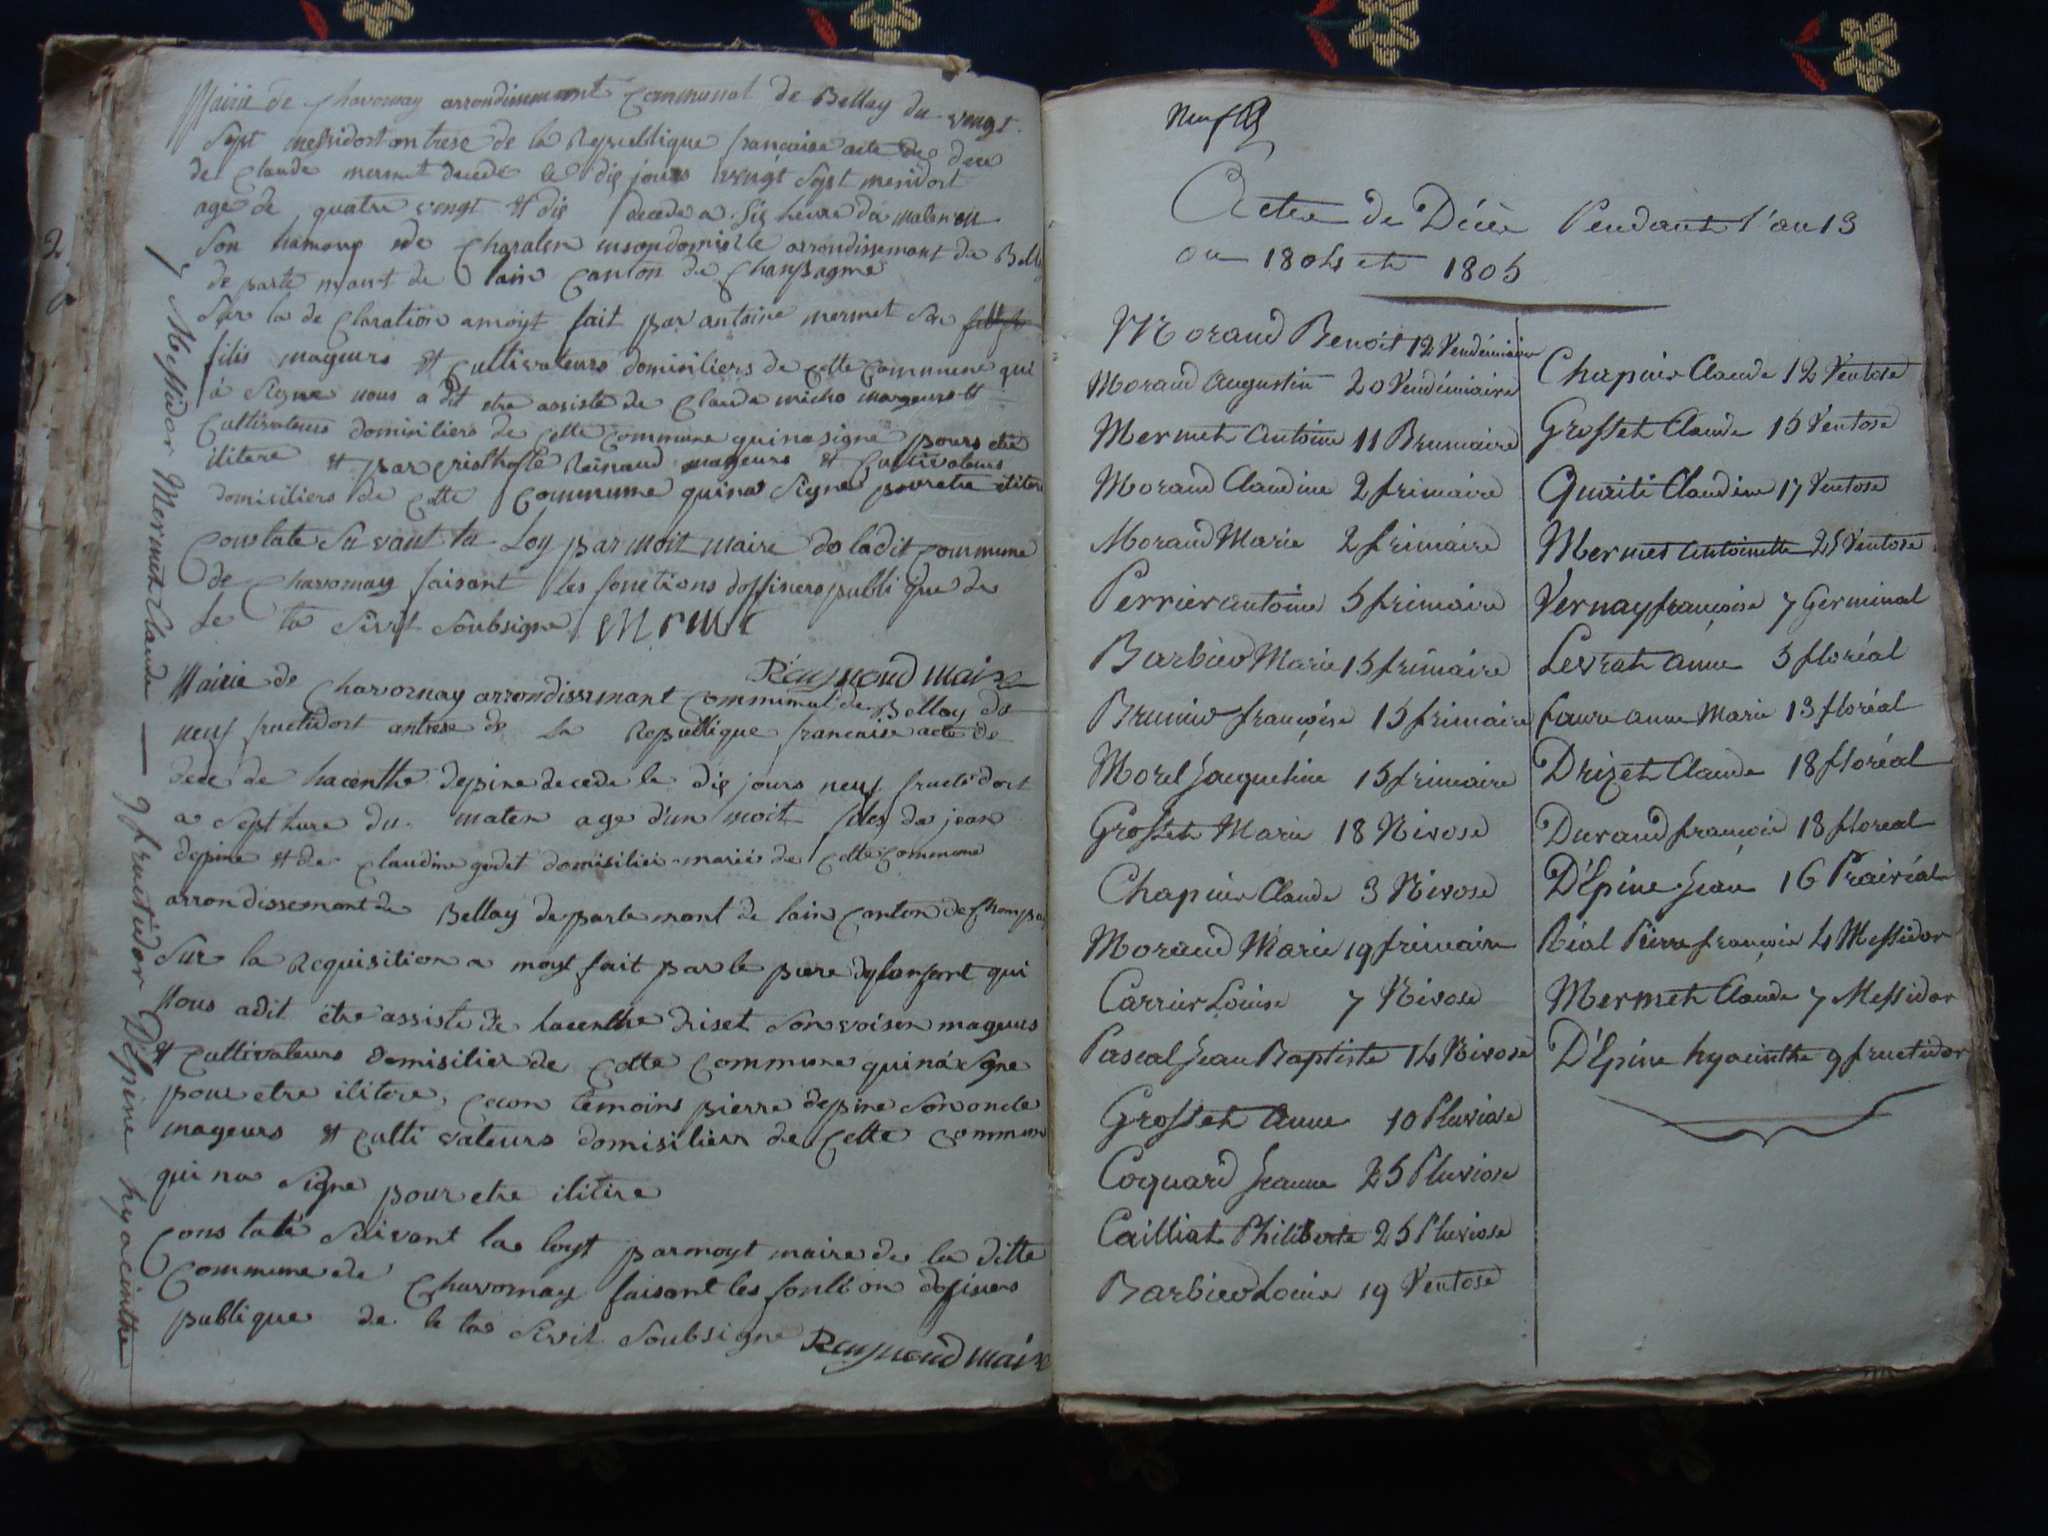 Mairie de Chavornay arrondissement Communal de Bellay du vingt
Sept messidort an trese de la Republique francaise acte de dece
de Claude mermet decede le dis jours vingt Sept mesidort
age de quatre vingt et dis decede a Sis heure du maten en
Son hamong de Charalen en son domisille arrondissemant de Bell
de partemant de lain Canton de Champagne
Sur la de Claration a moyt fait par antoine mermet son
filis mageurs et Cultivateurs domisiliers de Cette Commune qui
a Signe nous a dit etre assiste de Claude micho mageurs et
Cultivateurs domisiliers de Cette Commune qui na signe pours etre
ilitere et par cristhofle Reinaud mageurs et Cultivateurs
domisiliers de Cette Commune qui na Signe pour etre ilitere
Constate Suivant la Loy par moit maire de ladit Commune
de Chavornay faisant les fonctions doffisiers publique de
le ta Sivil Soubsigne Mermet
Raymond maire
Mairie de Chavornay arrondissemant Communal de Bellay du
neuf fructidort an trese de la Republique francaise acte de
dece de hacenthe depine decede le dis jours neuf fructidort
a Sept hure du maten age d'un moit fils de jean
depine et de Claudine godet domisiliei mariés de Cette Commune
arrondissemant de Bellay departemant de lain Canton de Champa
Sur la Requisition a moyt fait par le pere dy lenfant qui
Nous a dit être assiste de hacenthe driset Son voisen mageurs
et Cultivateurs domisilier de Cette Commune qui na Signe
pour etre ilitere, Secon temoins pierre depine Son oncle
mageurs et Culti vateurs domisilier de Cette Commune
qui na Signe pour etre ilitere
Constaté Suivant la loyt par moyt maire de la ditte
Commune de Chavornay faisant les fontion dofisiers
publique de le ta Sivil Soubsigne Raymond maire
7 Messidor Mermet Claude — 9 fructidor D'Epine hyacinthe
neuf
Actes de Décès Pendant l'an 13
ou 1804 et 1805
Morand Benoit 12 Vendémiaire
Morand Augustin 20 Vendémiaire
Mermet Antoine 11 Brumaire
Morand Claudine 2 frimaire
Morand Marie 2 frimaire
Perrier antoine 5 frimaire
Barbier Marie 15 frimaire
Brunier françoise 15 frimaire
Morel Jacqueline 15 frimaire
Grosset Marie 18 Nivose
Chapuis Claude 3 Nivose
Morand Marie 19 frimaire
Carrier Louise 7 Nivose
Pascal Jean Baptiste 14 Nivose
Grosset Anne 10 Pluviose
Coquard Jeanne 25 Pluviose
Cailliat Philiberte 25 Pluviose
Barbier Louise 19 Ventose
Chapuis Claude 12 Ventose
Grosset Claude 15 Ventose
Quaiti Claudine 17 Ventose
Mermet Antoinette 25 Ventose
Vernay françoise 7 Germinal
Levrat Anne 5 floréal
faure anne Marie 13 floréal
Drizet Claude 18 floréal
Durand françois 18 floreal
D'Epine Jean 16 Prairéal
Rial Pierre françois 4 Messidor
Mermet Claude 7 Messidor
D'Epine hyacinthe 9 fructidor